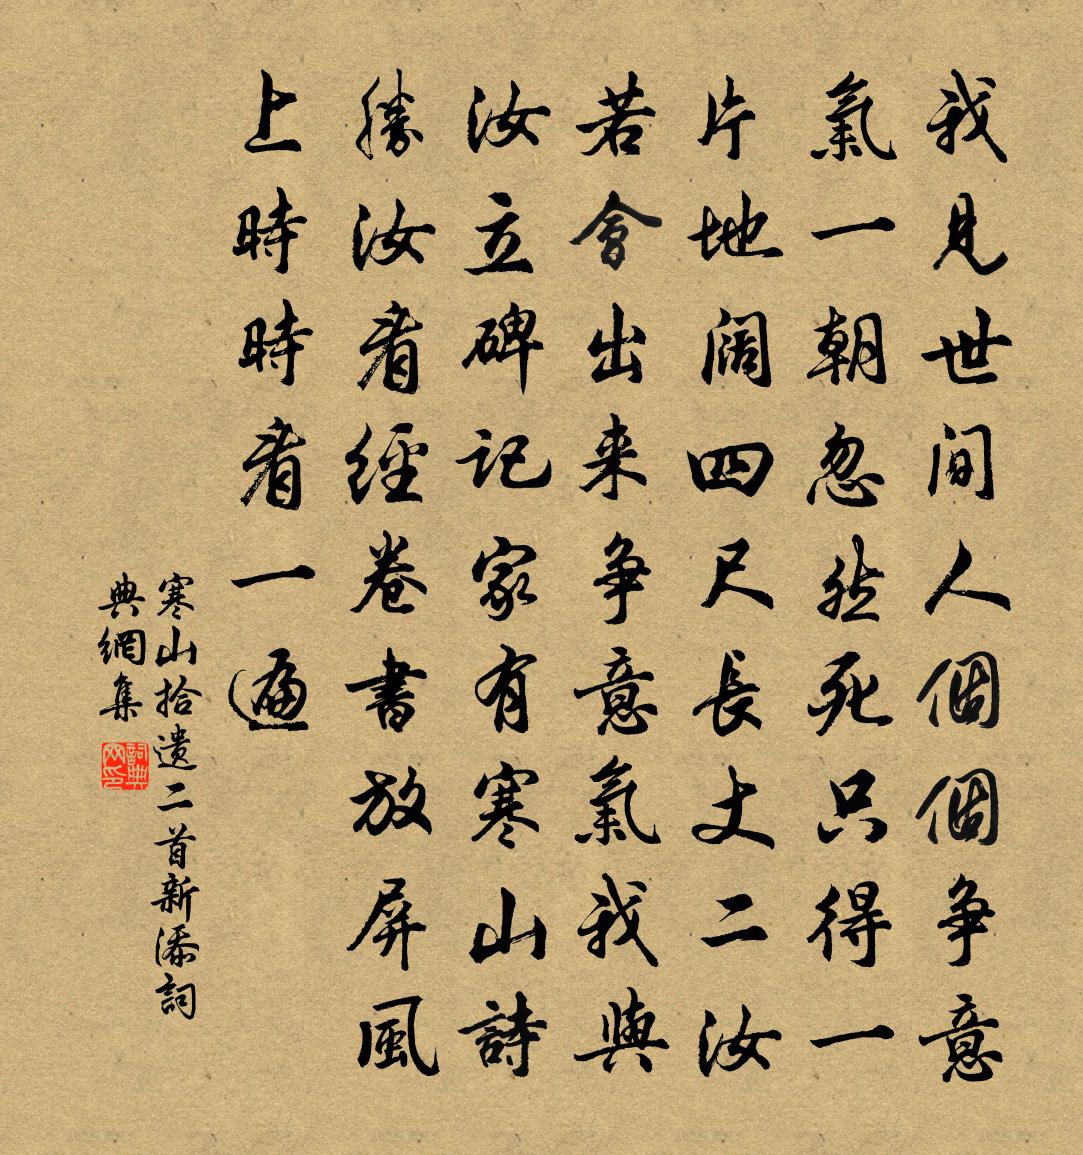 我見世间人個個争意
氣一朝忽然死只得一
片地阔四尺長丈二汝
若會出来争意氣我與
汝立碑記家有寒山詩
勝汝看經卷書放屏風
上時時看一遍
寒山拾遗二首新添詞
典網集
詞典网印